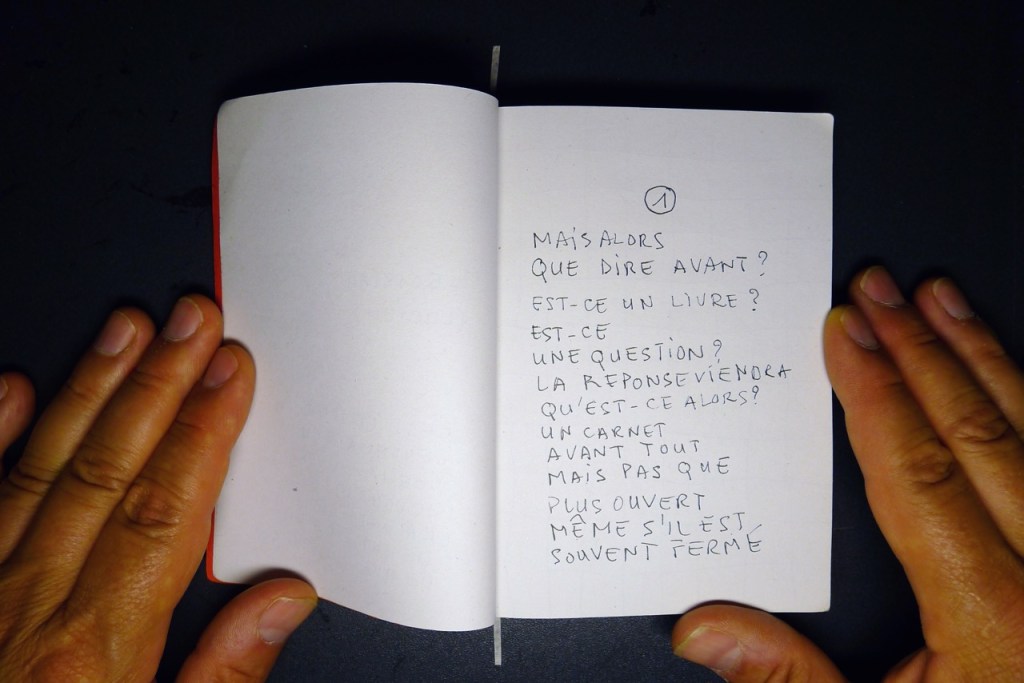 1
MAIS ALORS
QUE DIRE AVANT ?
EST-CE UN LIVRE ?
EST-CE
UNE QUESTION ?
LA REPONSE VIENDRA
QU'EST-CE ALORS ?
UN CARNET
AVANT TOUT
MAIS PAS QUE
PLUS OUVERT
MÊME S'IL EST
SOUVENT FERMÉ